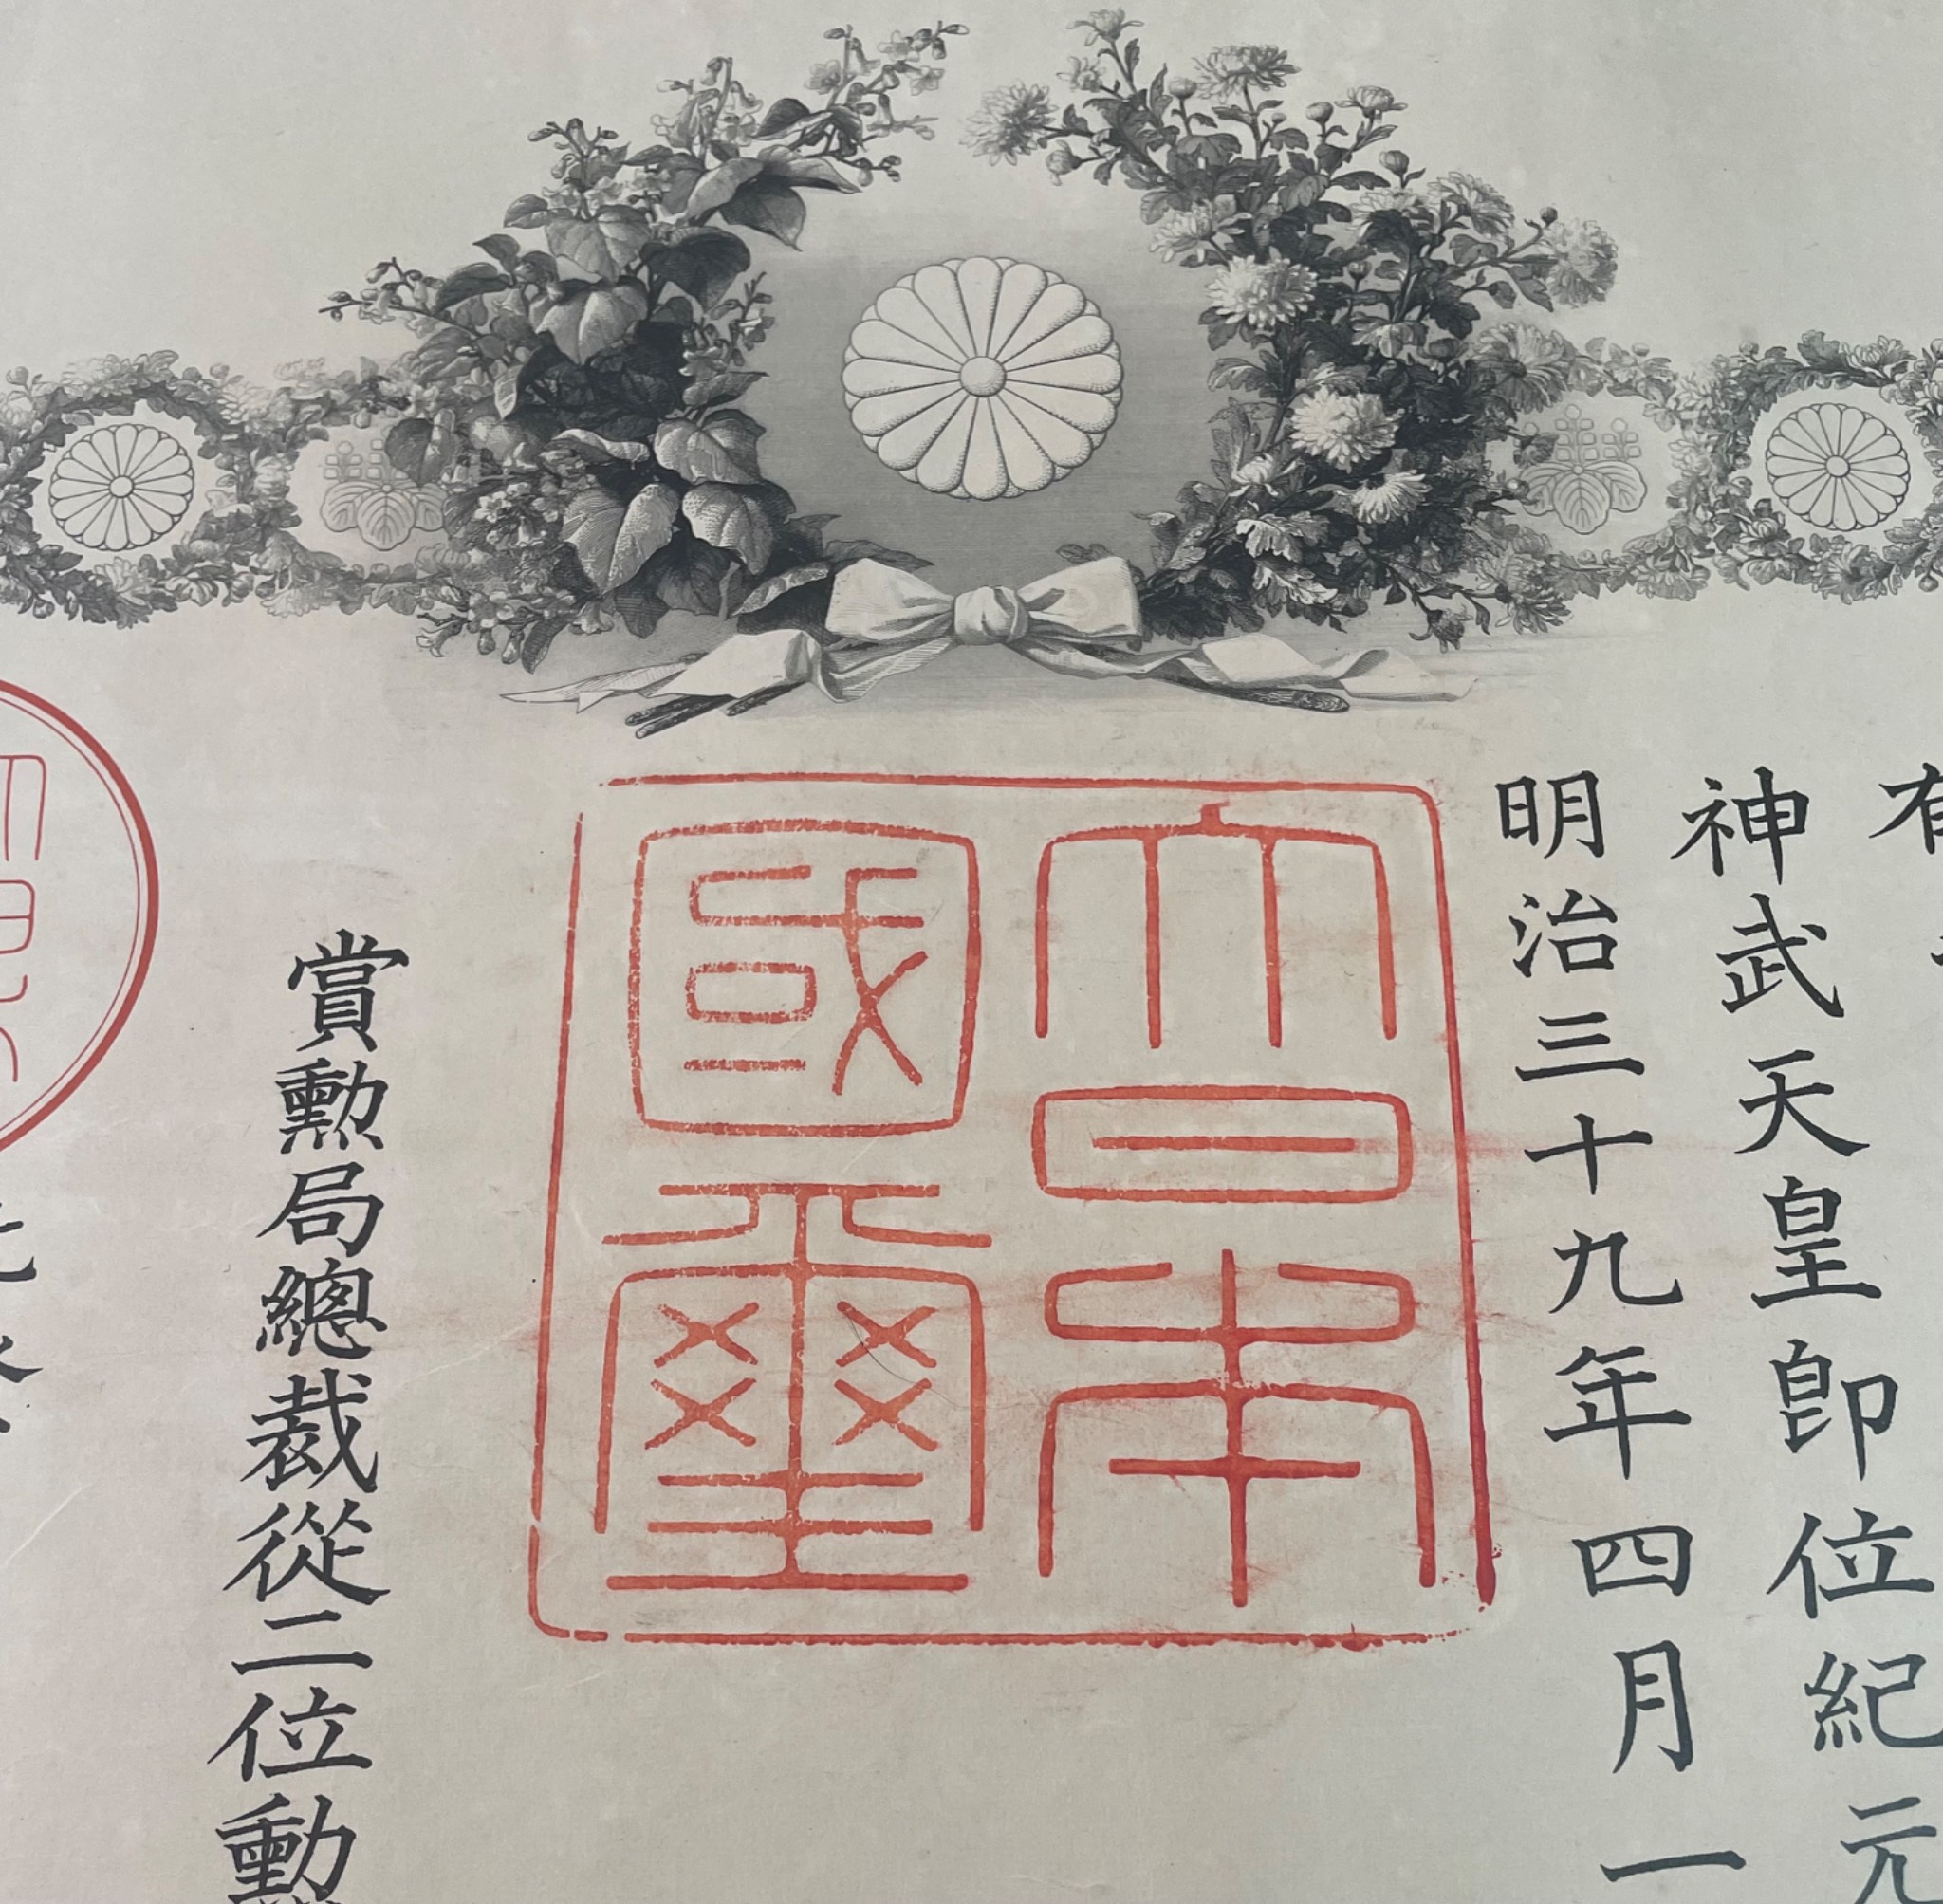 神武天皇卽位紀元
明治三十九年四月一
大日本
國璽
賞勲局總裁從二位勲